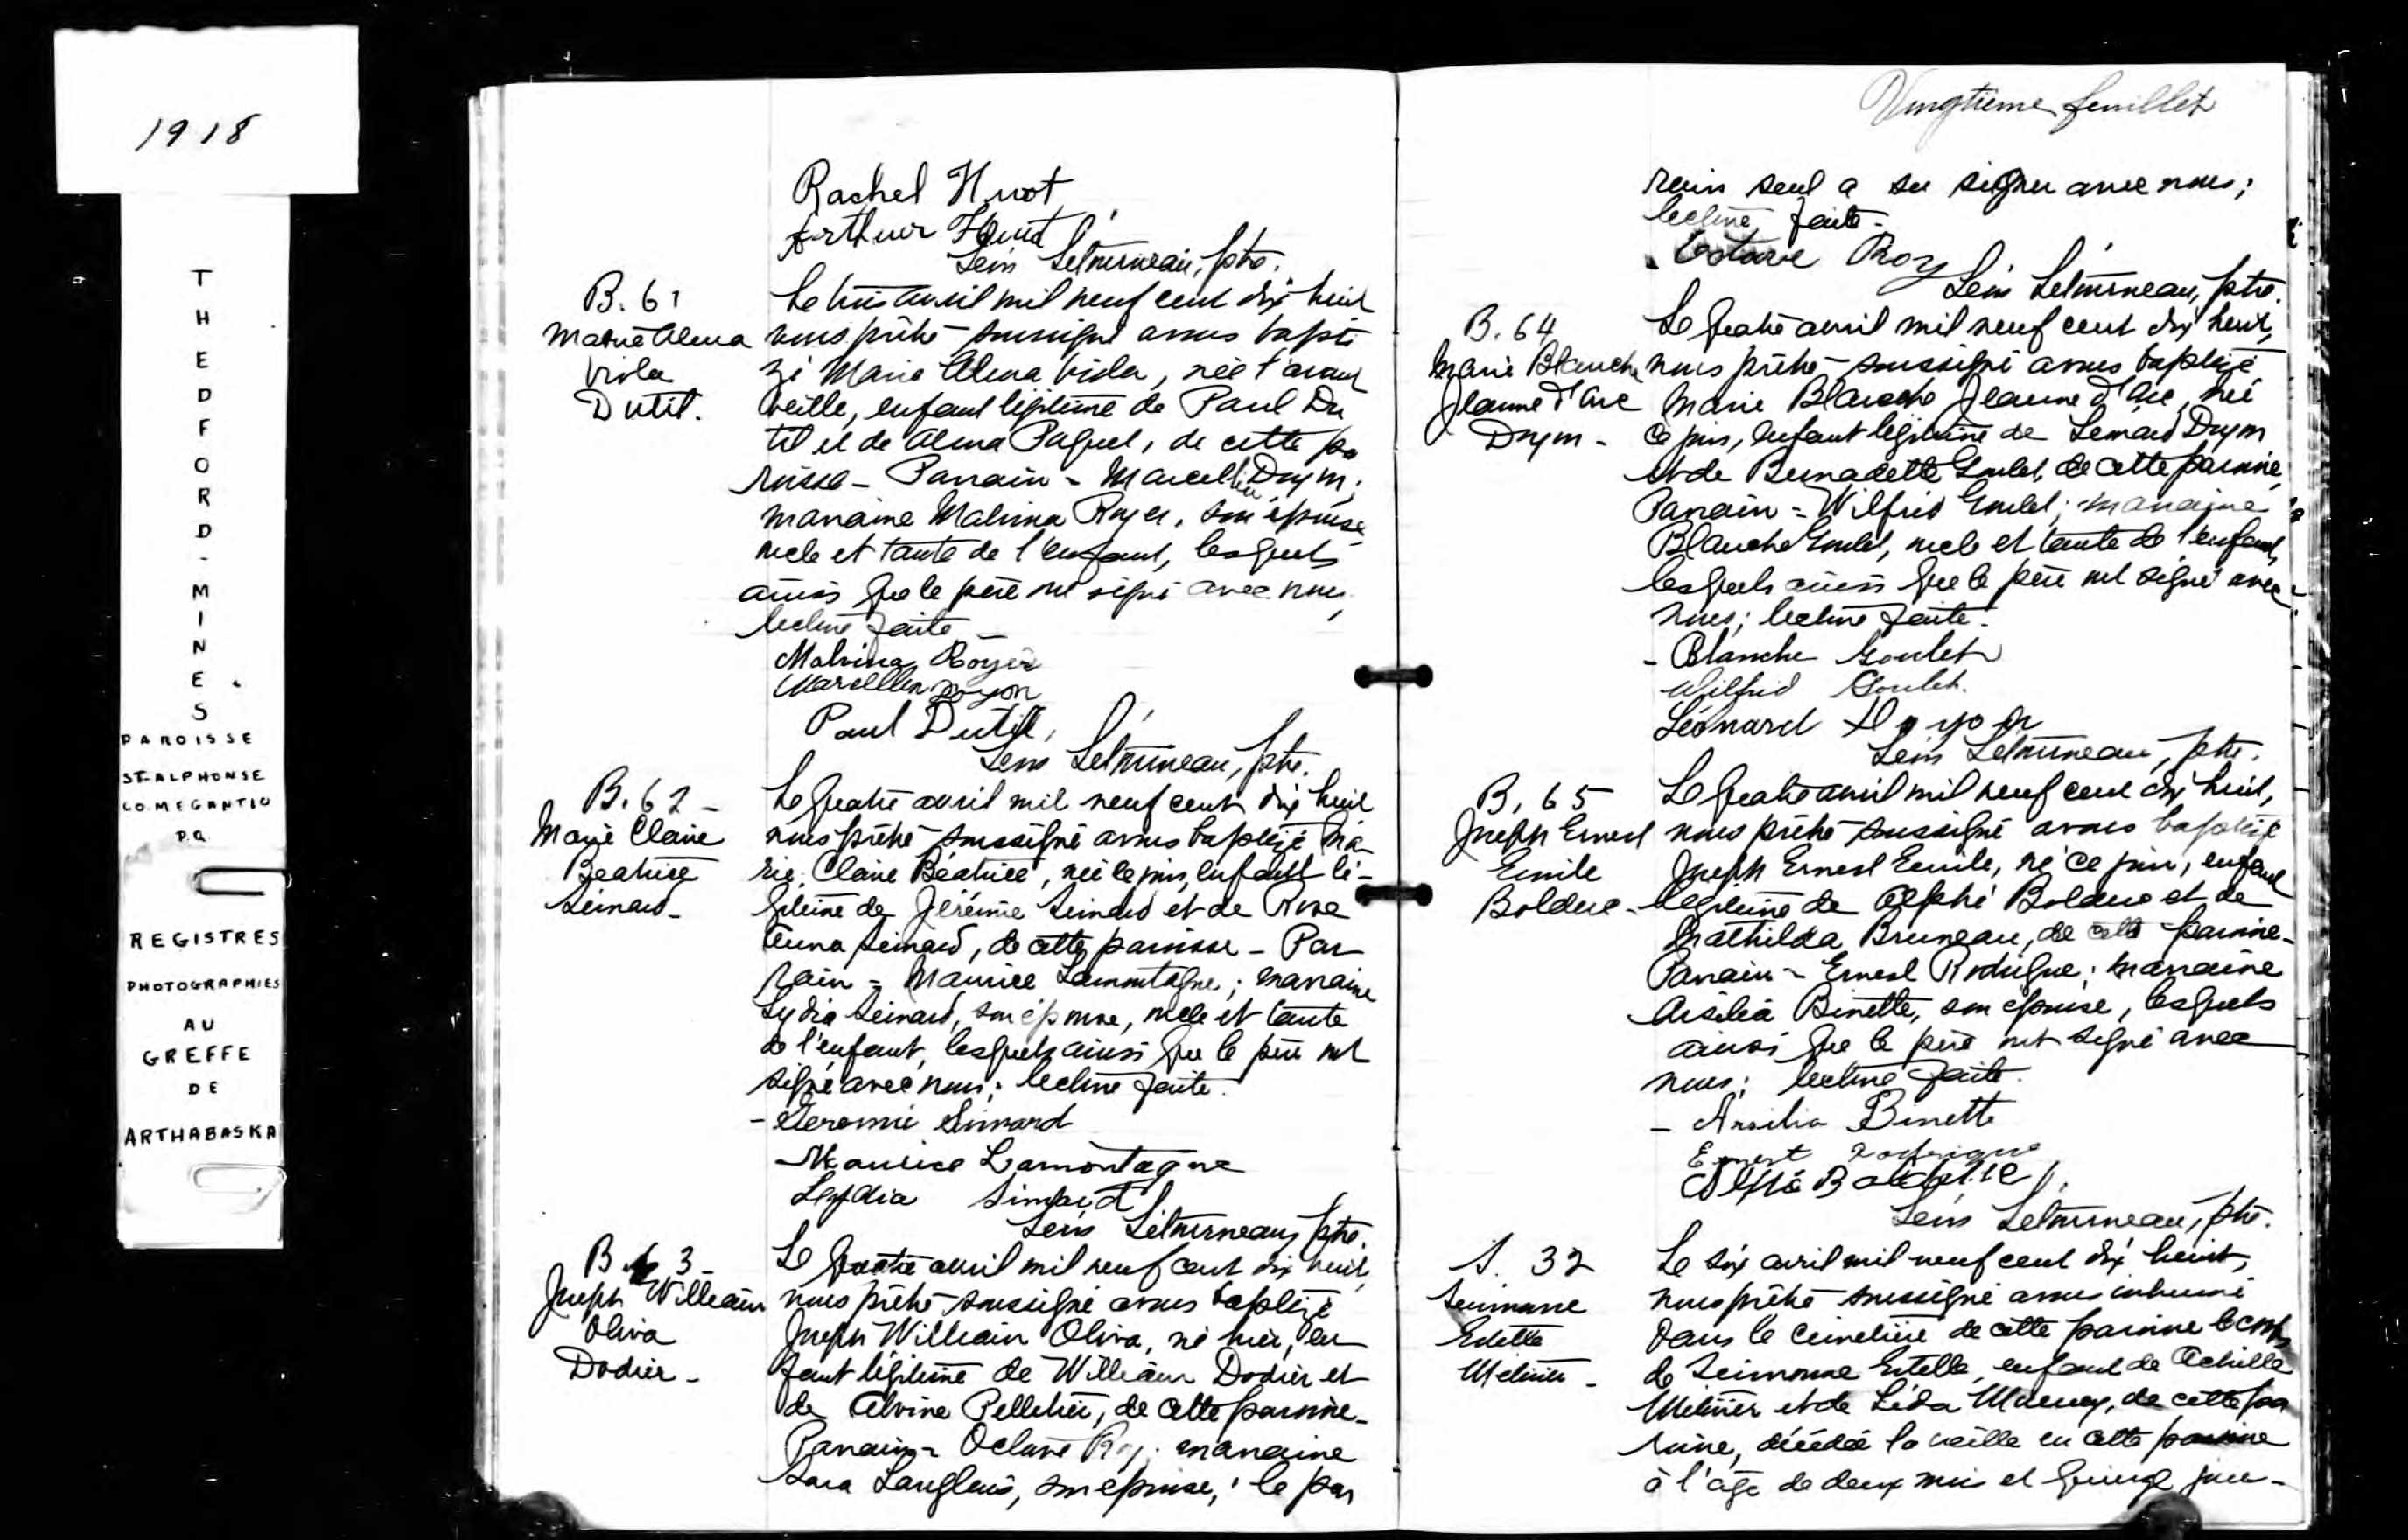 1918
THEDFORD-MINES
PAROISSE
ST-ALPHONSE
CO. MEGANTIC
P.Q
REGISTRES
PHOTOGRAPHIES
AU
GREFFE
DE
ARTHABASKA
Rachel Huot
Arthur Huot
Létourneau, ptre.
B. 61
Marie Alma
Viola
Dutil.
Le trois avril mil neuf cent dix huit
nous prêtre soussigné avons bapti
zé Marie Alma Viola, née l'avant
veille, enfant légitime de Paul Du
til et de Alma Paquet, de cette pa
roisse - Parrain - Marcellin Doyon;
marraine Malvina Royer, son épouse,
oncle et tante de l'enfant, lesquels
ainsi que le père ont signé avec nous,
lecture faite
Malvina Royer
Marcellin Doyon
Paul Dutil,
Létourneau, ptre.
B. 62 -
Marie Claire
Béatrice
Simard -
Le quatre avril mil neuf cent dix huit
nous prêtre soussigné avons baptizé Ma-
rie Claire Béatrice, née ce jour, enfant lé-
gitime de Jérémie Simard et de Rose
Anna Simard, de cette paroisse - Par
rain = Maurice Lamontagne; marraine
Lydia Simard, son épouse, oncle et tante
de l'enfant, lesquels ainsi que le père ont
signé avec nous; lecture faite.
- Jeremie Simard
- Maurice Lamontagne
Leydia Simard
Létourneau, ptre.
B. 63 -
Joseph William
Oliva
Dodier -
Le quatre avril mil neuf cent dix huit,
nous prêtre soussigné avons baptizé
Joseph William Oliva, né hier, en
fant légitime de William Dodier et
de Alvine Pelletier, de cette paroisse -
Parrain - Octave Roy; marraine
Sara Langlois, son épouse; le par
Vingtième feuillet
rain seul a su signer avec nous;
lecture faite -
Octave Roy
Létourneau, ptre.
B. 64
Marie Blanche
Jeanne d'Arc
Doyon -
Le quatre avril mil neuf cent dix huit,
nous prêtre soussigné avons baptizé
Marie Blanche Jeanne d'Arc, née
ce jour, enfant légitime de Léonard Doyon
et de Bernadette Goulet, de cette paroisse,
Parrain = Wilfrid Goulet; marraine
Blanche Goulet, oncle et tante de l'enfant,
lesquels ainsi que le père ont signé avec
nous; lecture faite -
- Blanche Goulet
Wilfrid Goulet.
Léonard Doyon
Létourneau, ptre.
B. 65
Joseph Ernest
Emile
Bolduc -
Le quatre avril mil neuf cent dix huit,
nous prêtre soussigné avons baptizé
Joseph Ernest Emile, né ce jour, enfant
légitime de Alphé Bolduc et de
Mathilda Bruneau, de cette paroisse -
Parrain - Ernest Rodrigue; marraine
Arsélia Binette, son épouse, lesquels
ainsi que le père ont signé avec
nous; lecture faite.
- Arsilia Binette
Ernest Rodrigue
Alphé Bolduc
Létourneau, ptre.
S. 32
Seimonne
Estelle
Métivier -
Le six avril mil neuf cent dix huit,
nous prêtre soussigné avons inhumé
dans le cimetière de cette paroisse le corps
de Seimonne Estelle, enfant de Achille
Métivier et de Léda, de cette pa
roisse, décédée la veille en cette paroisse
à l'âge de deux mois et quinze jours -